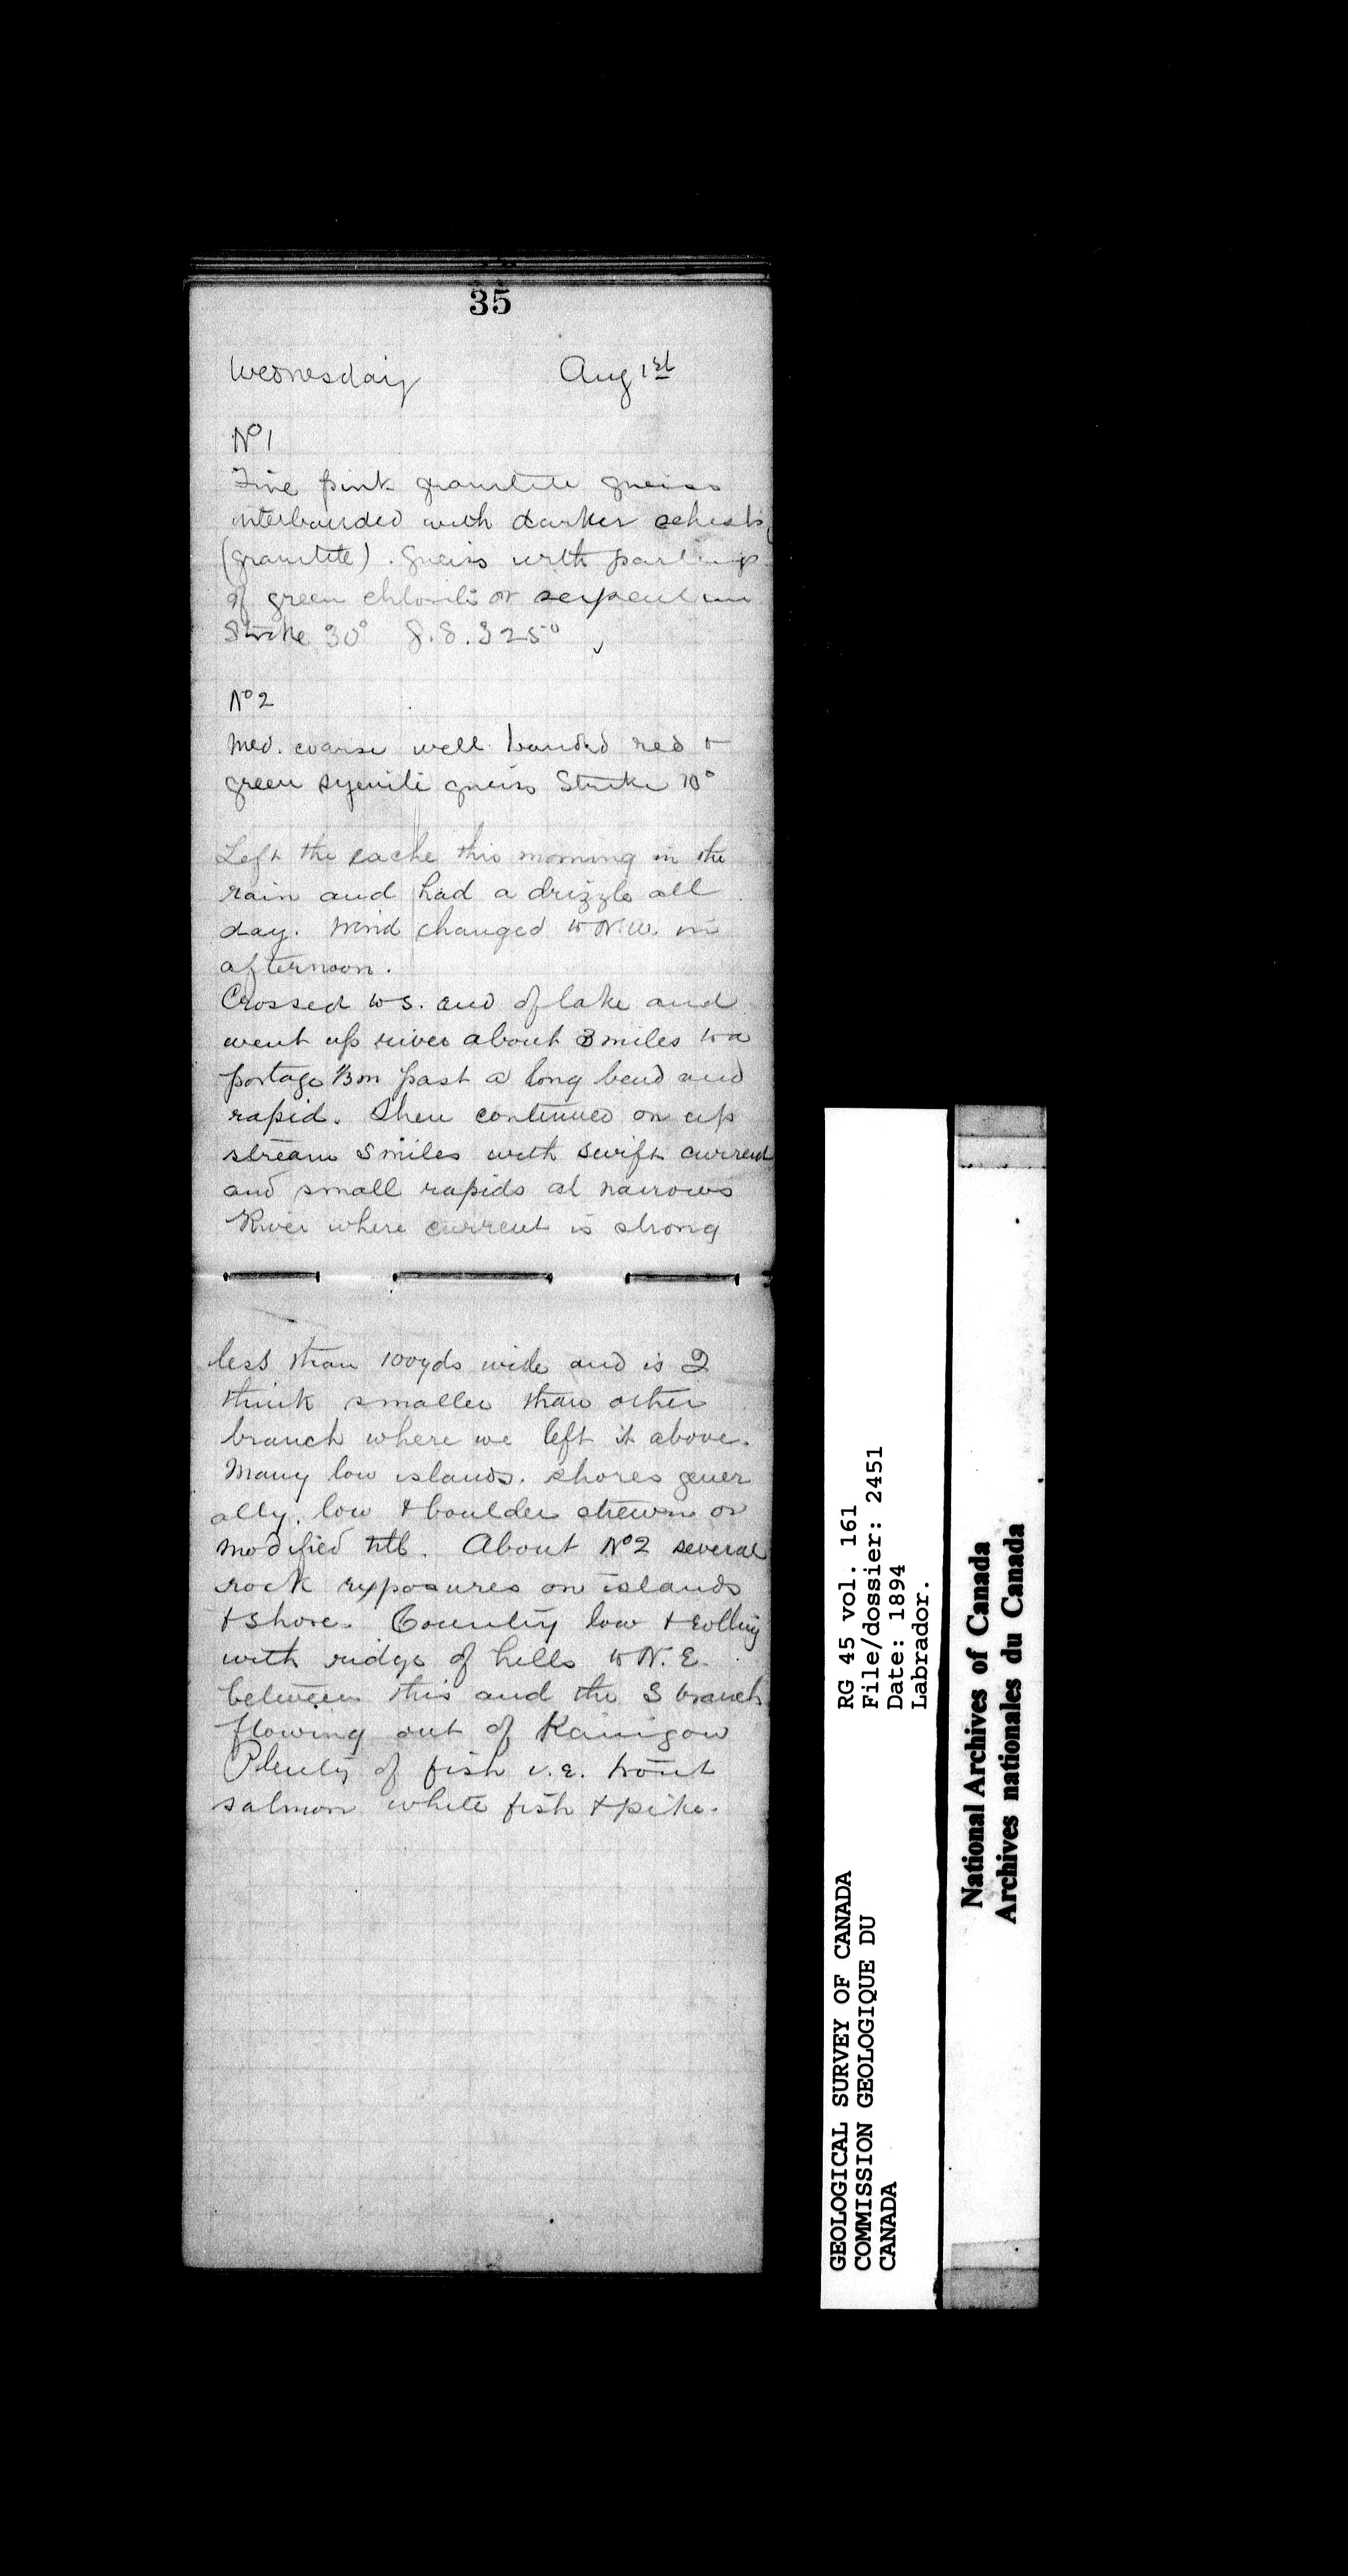 35
Wednesday Aug 1st
No 1
Fine pink granitite gneiss
interbanded with darker schists
(granitite). gneiss with partings
of green chlorite or serpentine
Strike 30° 325°
No 2
Med. coarse well banded red +
green syenite gneiss Strike 70°
Left the cache this morning in the
rain and had a drizzle all
day. Wind changed to N.W. in
afternoon.
Crossed to S. end of lake and
went up river about 3 miles to a
portage 1/3 m past a long bend and
rapid. Then continued on up
stream 5 miles with swift current
and small rapids at narrows
River where current is strong
less than 100yds wide and is I
think smaller than other
branch where we left it above.
Many low islands. shores gener
ally. low + boulder strewn or
modified till. About No 2 several
rock exposures on islands
+ shore. Country low + rolling
with ridge of hills to N.E.
between this and the S branch
flowing out of
Plenty of fish i.e. trout
salmon white fish + pike.
GEOLOGICAL SURVEY OF CANADA
COMMISSION GEOLOGIQUE DU
CANADA
RG 45 vol. 161
File/dossier: 2451
Date: 1894
Labrador.
National Archives of Canada
Archives nationales du Canada